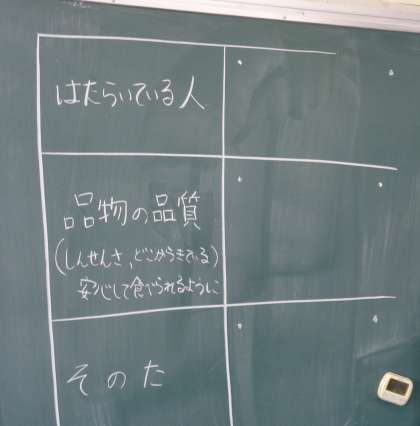 はたらいている人
品物の品質
(しんせんさ、どこからきている)
安心して食べられるように
そのた